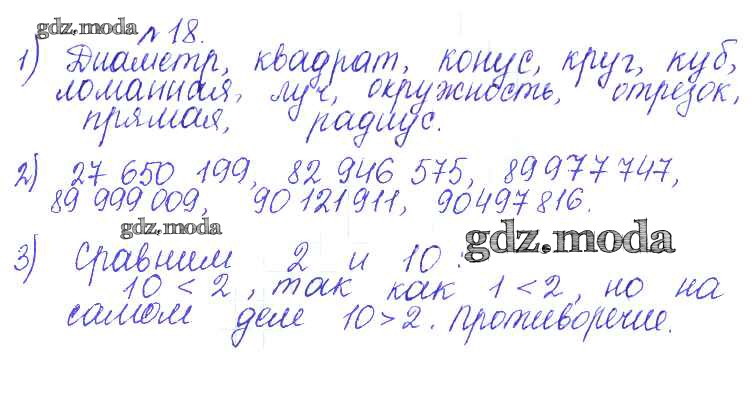 gdz.moda
№ 18.
1) Диаметр, квадрат, конус, круг, куб,
ломанная, луч, окружность, отрезок,
прямая, радиус.
2) 27 650 199, 82 946 575, 89 977 747,
89 999 009, 90 121 911, 90 497 816.
gdz.moda
gdz.moda
3) Сравним 2 и 10:
10 < 2, так как 1 < 2, но на
самом деле 10 > 2. Противоречие.